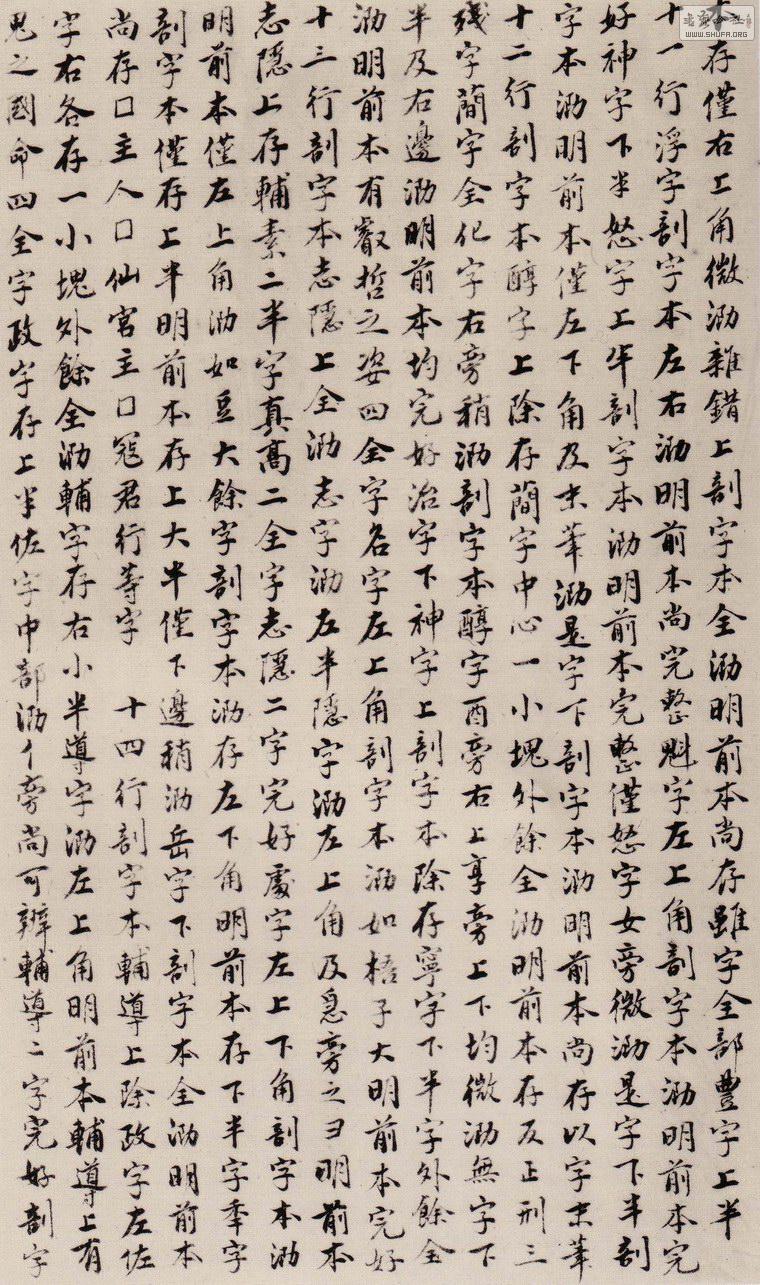 本存僅右上角微泐雜錯上剖字本全泐明前本尚存雖字全部豐字上半
十一行浮字剖字本左右泐明前本尚完整魁字左上角剖字本泐明前本完
好神字下半怒字上半剖字本泐明前本完整僅怒字女旁微泐是字下半剖
字本泐明前本僅左下角及末筆泐是字下剖字本泐明前本尚存以字末筆
十二行剖字本醇字上除存簡字中心一小塊外餘全泐明前本存反正刑三
殘字簡字全化字右旁稍泐剖字本醇字酉旁右上享旁上下均微泐無字下
半及右邊泐明前本均完好治字下神字上剖字本除存寧字下半字外餘全
泐明前本有叡哲之姿四全字名字左上角剖字本泐如梧子大明前本完好
十三行剖字本志隱上全泐志字泐左半隱字泐左上角及急旁之彐明前本
志隱上存輔素二半字真高二全字志隱二字完好處字左上下角剖字本泐
明前本僅左上角泐如豆大餘字剖字本泐存左下角明前本存下半字季字
剖字本僅存上半明前本存上大半僅下邊稍泐岳字下剖字本全泐明前本
尚存口主人口仙宮主口寇君行等字 十四行剖字本輔導上除政字左佐
字右各存一小塊外餘全泐輔字存右小半導字泐左上角明前本輔導上有
鬼之國命四全字政字存上半佐字中部泐亻旁尚可辨輔導二字完好剖字
書法合社
WWW.SHUFA.ORG